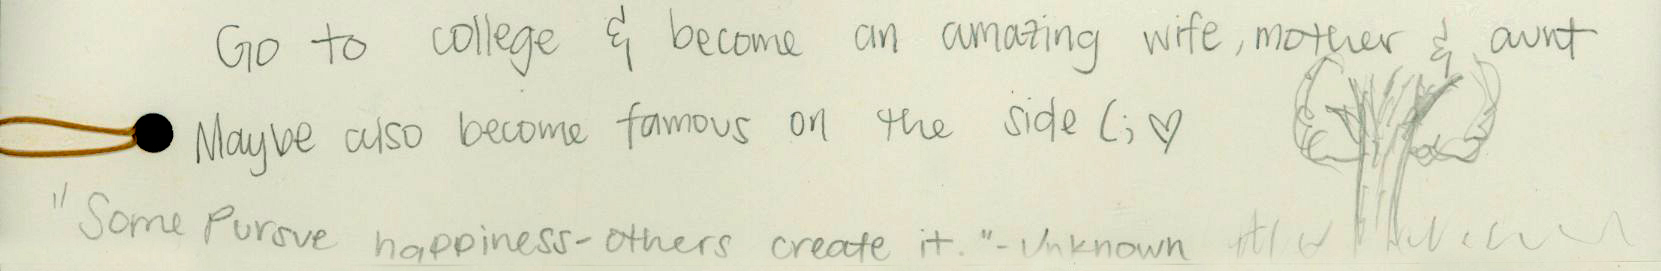 Go to college & become an amazing wife, mother & aunt
Maybe also become famous on the side (; ♡
"Some Pursue happiness-others create it."-Unknown